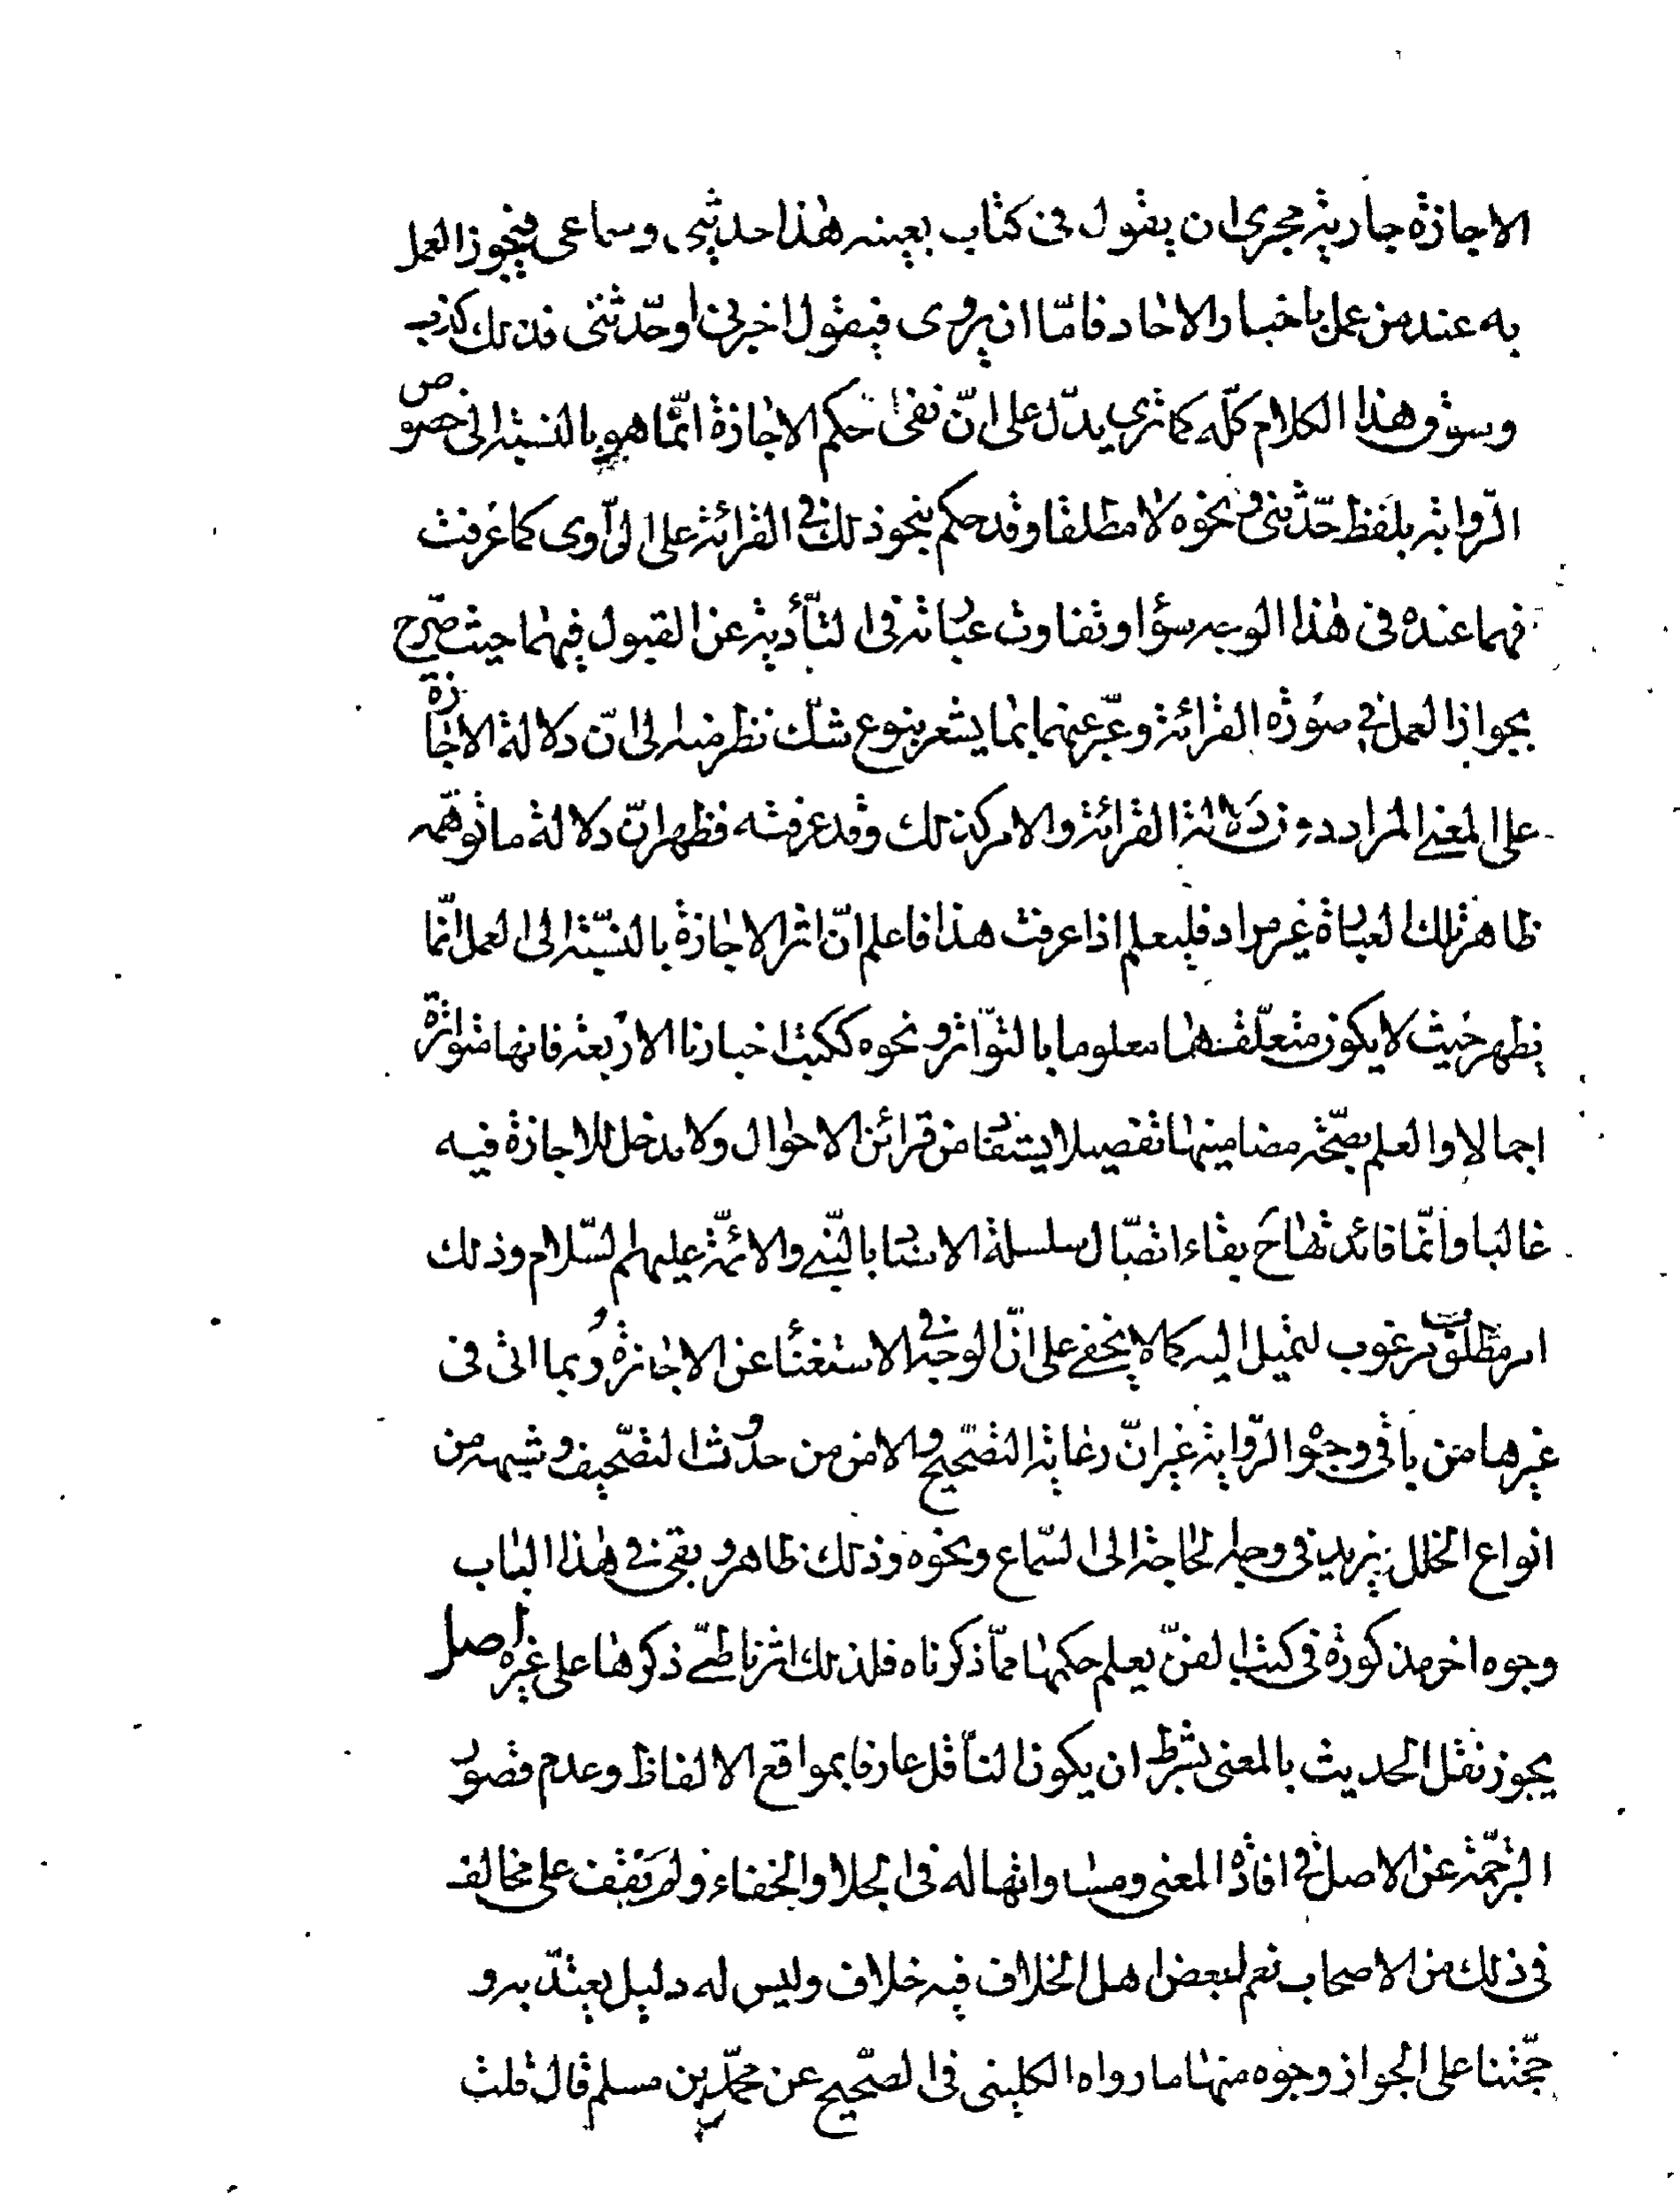 الاجازة جارية مجرى ان يقول فى كتاب بعينه هذا حديثى وسماعى فيجوز العمل
به عند من عمل باخبار الاحاد فامّا ان يروى فيقول اخبرنى او حدّثنى فذلك كذب
وسوق هذا الكلام كلّه كما ترى يدلّ على انّ نفى حكم الاجازة انّما هو بالنسبة الى خصوص
الرّواية بلفظ حدّثنى ونحوه لا مطلقا وقد حكم بنحو ذلك فى القرائة على الرّاوى كما عرفت
فهما عنده فى هذا الوجه سواء وتفاوت عبارته فى التّأدية عن القبول فيهما حيث صرّح
بجواز العمل فى صورة القرائة وعبّر عنهما بما يشعر بنوع شكّ نظر منه الى انّ دلالة الاجازة
على المعنى المراد دون دلالة القرائة والامر كذلك وقد عرفته فظهر انّ دلالة ما توهّمه
ظاهر تلك العبارة غير مراد فليعلم اذا عرفت هذا فاعلم انّ اثر الاجازة بالنّسبة الى العمل انّما
يظهر حيث لا يكون متعلّقها معلوما بالتّواتر ونحوه ككتب اخبارنا الاربعة فانها متواترة
اجمالا والعلم بصحّة مضامينها تفصيلا يستفاد من قرائن الاحوال ولا مدخل للاجازة فيه
غالبا وانّما فائدتها ح بقاء اتصّال سلسلة الاسناد بالنّبى والائمّة عليهم السّلام وذلك
امر مطلوب مرغوب لتميل اليه كما لا يخفى على انّ الوجه فى الاستغناء عن الاجازة ربما اتى فى
غيرها من باقى وجوه الرّواية غير انّ رعاية التّصحيح والامن من حدوث التّصحيف وشبهه من
انواع الخلل يزيد فى وجه الحاجة الى السّماع ونحوه وذلك ظاهر وبقى فى هذا الباب
وجوه اخر مذكورة فى كتب الفنّ يعلم حكمها ممّا ذكرناه فلذلك اثرنا طىّ ذكرها على غيره اصل
يجوز نقل الحديث بالمعنى بشرط ان يكون النّاقل عارفا بمواقع الالفاظ وعدم قصور
التّرجمة عن الاصل فى افادة المعنى ومساواتها له فى الجلاء والخفاء ولم نقف على مخالف
فى ذلك من الاصحاب نعم لبعض اهل الخلاف فيه خلاف وليس له دليل يعتدّ به و
حجّتنا على الجواز وجوه منها ما رواه الكلينى فى الصّحيح عن محمّد بن مسلم قال قلت